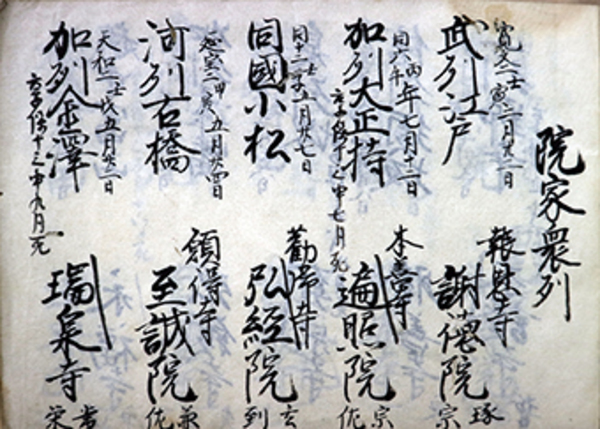 院家衆列
寛文二壬寅二月廿二日
報恩寺
武州江戸
謝徳院
琢宗
同六丙午年七月十二日
本善寺
加州大正持
遍照院
宗佐
享保十三申七月死
五月廿七日
勧帰寺
同國小松
弘経院
玄到
延宝二甲寅五月廿四日
願得寺
河州古橋
至誠院
兼佐
天和二壬戌五月廿二日
加州金澤
瑞泉寺
享保十三申九月死